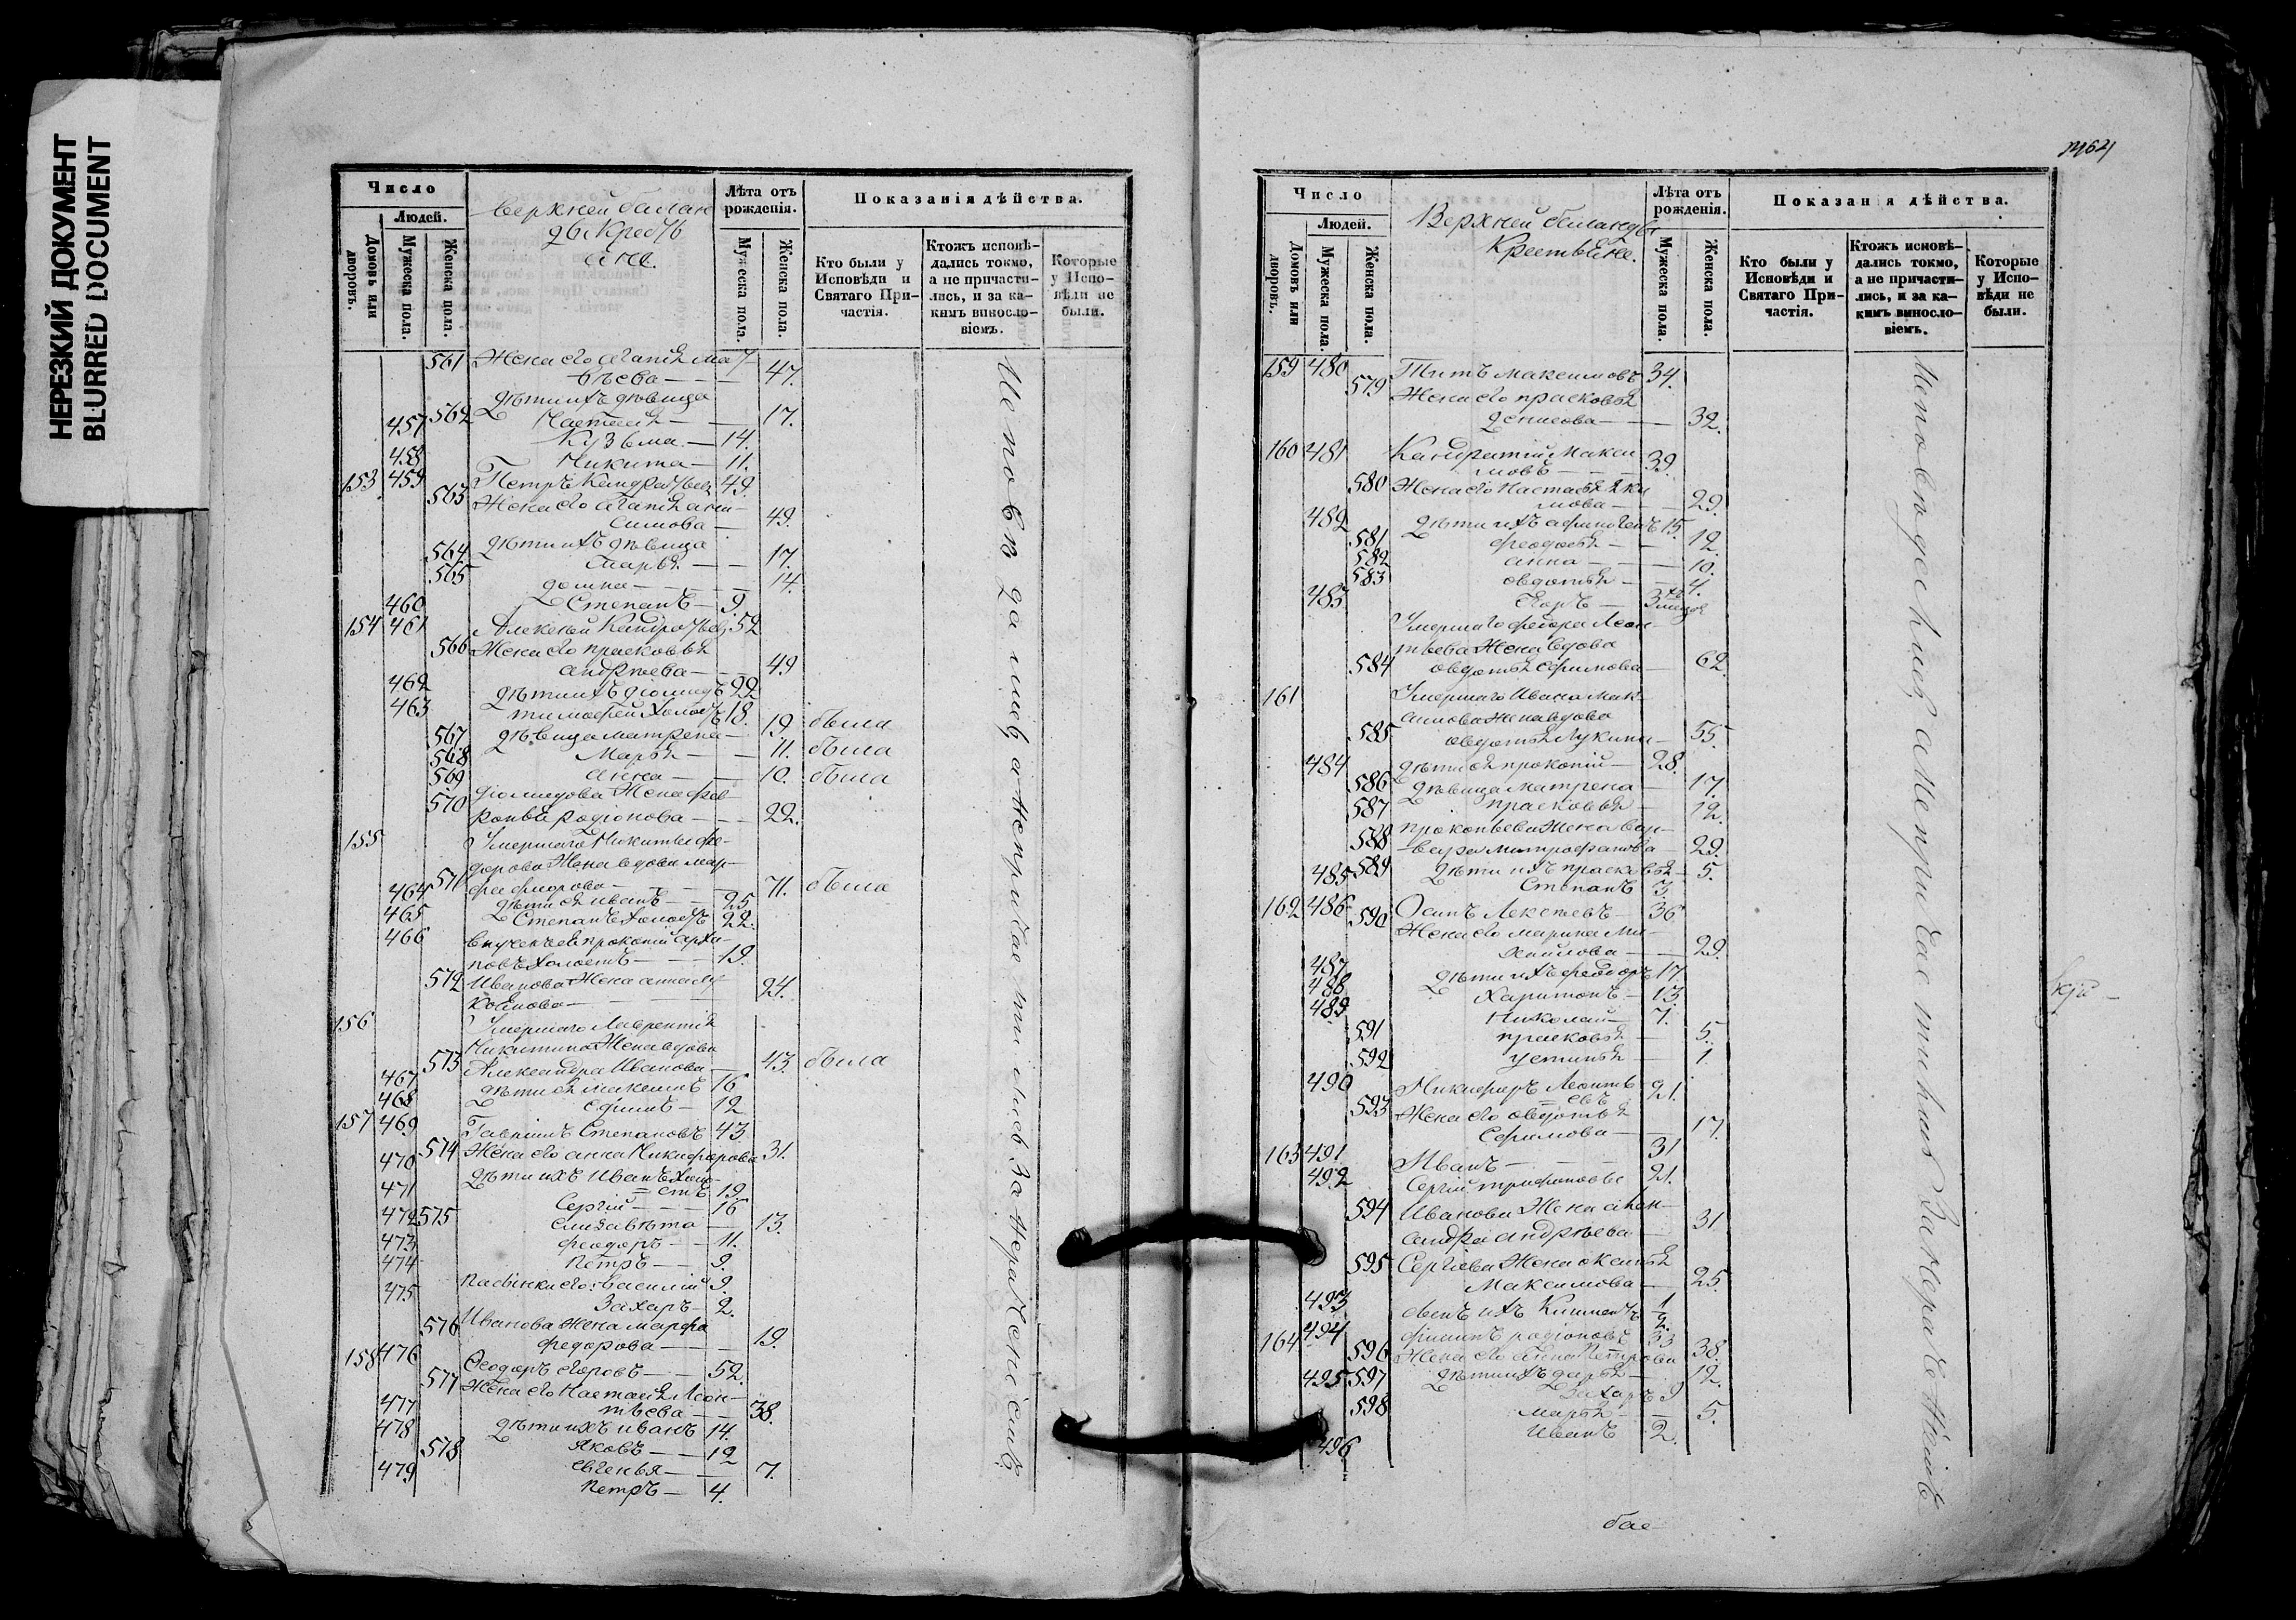 НЕРЕЗКИЙ ДОКУМЕНТ
BLURRED DOCUMENT
Число
Людей.
Домовъ или дворовъ.
Мужеска пола.
Женска пола.
Верхней балан
Лѣта отъ рожденія.
Мужеска пола.
Женска пола.
Показанія дѣйства.
Кто были у Исповѣди и Святаго Причастія.
Ктожъ исповѣдались токмо, а не причастились, и за какимъ винословіемъ.
Которые у Исповѣди не были.
561 Жена его Агапія Мат
вѣева — 47.
дѣти ихъ дѣвица
562 Настасья — 17.
457 Кузьма — 14.
458 Никита — 11.
153 459 Петръ Кандратьевъ 49.
563 Жена его Агапія Ани-
симова — 49.
дѣти ихъ дѣвица
564 Марья — 17.
565 домна — 14.
460 Степанъ — 9.
154 461 Алексей Кандратьевъ 52
566 Жена его прасковья
андрѣева — 49
462 дѣти ихъ диомидъ 22
463 тимофей холостъ 18.
567 дѣвица матрена — 19 была
568 Марья — 11. была
569 анна — 10. была
570 диомидова Жена фев-
ронья родіонова — 22.
155 Умершаго Никиты фе-
дорова Жена вдова мар-
571 фа фиорова — 71. была
464 дѣти ея иванъ — 25
465 Степанъ холостъ 22.
466 внучекъ ея прокопій архи-
повъ холостъ — 19.
572 Иванова Жена анна Лу
коянова — 24.
156 Умершаго Лаврентія
Никитина Жена вдова
573 Александра Иванова — 43. была
467 дѣти ея максимъ 16
468 ефимъ — 12
157 469 Гаврилъ Степановъ 43
574 Жена его анна Никифарова 31.
470 дѣти ихъ Иванъ холо-
=стъ 19.
471 Сергій — 16
472 575 елизавѣта — 13.
473 феодоръ — 11.
474 петръ — 9.
475 пасынки его: василій 9.
Захаръ — 2.
576 Иванова Жена марфа
федорова — 19.
158 476 Феодоръ егоровъ — 52.
577 Жена его Настасья Леон-
477 тьева — 38.
478 дѣти ихъ иванъ 14.
578 яковъ — 12
479 евгенья — 7.
петръ — 4.
Исповѣдались, а непричастились За нераченіемъ
Число
Людей.
Домовъ или дворовъ.
Мужеска пола.
Женска пола.
Верхней баланды
Крестьяне.
Лѣта отъ рожденія.
Мужеска пола.
Женска пола.
Показан я дѣйства.
Кто были у Исповѣди и Святаго Причастія.
Ктожъ исповѣдались токмо, а не причастились, и за какимъ винословіемъ.
Которые у Исповѣди не были.
159 480 Титъ максимовъ 34.
579 Жена его прасковья
денисова — 32.
160 481 Кандратій Макси
мовъ — 39.
580 Жена его Настасья Яки
мова — 29.
482 дѣти ихъ афиногенъ 15.
581 феодосья — 12
582 анна — 10.
583 овдотья — 4.
483 егоръ — 3
Умершаго федора Леон-
тьева Жена вдова
584 овдотья ефимова — 62.
161 Умершаго Ивана мак-
симова Жена вдова
585 овдотья Лукина — 55.
484 дѣти ея прокопій — 28.
586 дѣвица матрена — 17.
587 прасковья — 12.
588 прокопьева Жена вар-
вара митрофанова — 29.
485 589 дѣти ихъ прасковья — 5.
Степанъ 3
162 486 590 Осипъ Алексѣевъ — 36
Жена его марина Ми-
хайлова — 29.
487 дѣти ихъ феодоръ 17.
488 Харитонъ — 13.
489 Николай — 7.
591 прасковья — 5.
592 устинья — 1
490 Никифоръ Леонтьевъ 21.
593 Жена его овдотья
Ефимова — 17.
163 491 Иванъ — 31
492 Сергій трифоновы 21.
594 Иванова Жена алек-
сандра андрѣева — 31
595 Сергіева Жена оксинья
Максимова — 25
493 сынъ ихъ
494 филипъ родіоновъ 33
164 596 Жена его анна Петрова 38.
495 597 дѣти ихъ дарья — 12.
Захаръ 9
598 марья — 5.
496 иванъ 2.
Исповѣдались, а Непричастились За Нераченіемъ
бас-